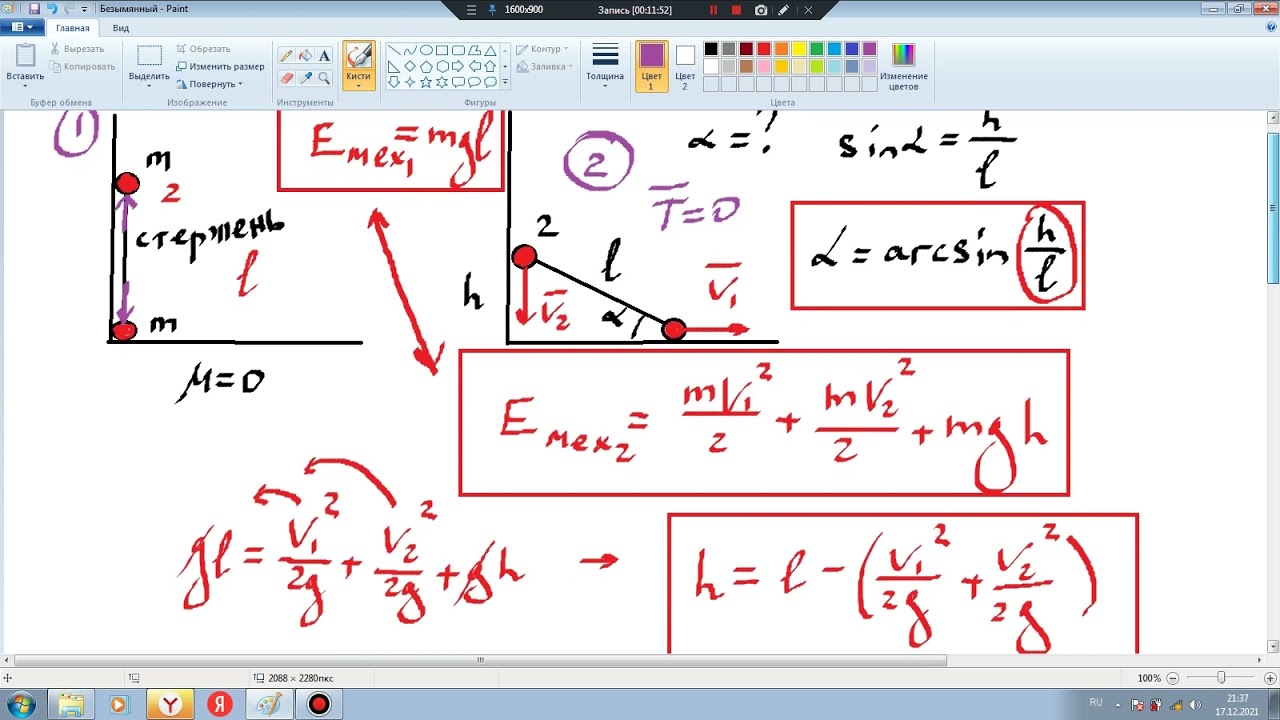 Безымянный - Paint
1600x900
Запись [00:11:52]
Главная
Вид
Вставить
Вырезать
Копировать
Буфер обмена
Выделить
Обрезать
Изменить размер
Повернуть
Изображение
Инструменты
Кисти
Контур
Заливка
Фигуры
Толщина
Цвет 1
Цвет 2
Изменение цветов
Цвета
1
m
2
стержень
l
m
μ=0
Eмех₁=mgl
2
α=?
sinα=h/l
T̅=0
α=arcsin h/l
2
l
h
V̅₂
α
V̅₁
Eмех₂=mV₁²/2+mV₂²/2+mgh
gl=V₁²/2g+V₂²/2g+gh →
h=l-(V₁²/2g+V₂²/2g)
2088 × 2280пкс
100%
RU
21:37
17.12.2021